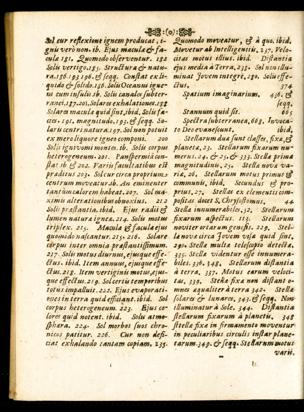 Sol cur reflexione ignem producat, se-
gnis verò non. ib. Ejus maculæ & fa-
culæ 191. Quomodo observentur. 192
Solis vertigo. 193. Structura & natu-
ra. 196. 193 196. & seqq. Constat ex li-
quido & solido. 196. Solis Oceanus igne-
us cum insulis. ib. Solis canales subter-
ranei. 197. 201. Solares exhalationes. 198
Solares macula quid sint, ibid. Solis fa-
ces. 191. magnitudo. 193. & seqq. So-
laris centri natura. 197. Sol non potuit
ex mero liquore ignei componi. 200
Solis ignivomi montes. ib. Solis corpus
heterogeneum. 201. Panspermiæ con-
stat ib. & 202. Variis facultatibus est
præditus 203. Sol cur circa proprium
centrum moveatur. ib. An emineat
tantùm calorem habeat. 207. Sol ma-
ximis alterationibus obnoxius. 212
Solis præstantia. ibid. Ejus radii &
lumen natura ignea. 214. Solis motus
triplex. 215. Macula & facula ejus
quomodo nascantur. 225. 226. Solare
corpus inter omnia præstantissimum.
217. Solis motus diurnus, ejusque effe-
ctus. ibid. Item annuus, ejusque effe-
ctus. 218. Item vertiginis motus, ejus-
que effectus. 219. Sol certis temporibus
totus impalluit. 222. Ejus evaporati-
ones in terra quid efficiant. ibid. Sol
corpus heterogeneum. 223. Ejus co-
lores quid notent. ibid. Solis atmo-
sphæra. 224. Sol morbos suos chro-
nicos patitur. 226. Cur non defi-
ciat exhalando tantam copiam. 235.
Quomodo moveatur, & à quo. ibid.
Movetur ab Intelligentiis, 237. Velo-
citas motus illius. ibid. Distantia
ejus media à Terra, 235. Sol non illu-
minat Jovem integrè, 280. Solis effe-
ctus, 374
Spatium imaginarium. 436. &
seqq.
Stannum quid sit. 665
Spectra subterranea, 663. Invoca-
to Deo evanescunt. ibid.
Stellarum duæ sunt classes, fixæ, &
planetæ, 23. Stellarum fixarum nu-
merus. 22. & 25. & 333 Stella primæ
magnitudinis, 23. Stella novæ va-
riæ, 26. Stellarum motus primus &
communis, ibid. Secundus & pro-
prius, 27. Stellas ex elementis com-
positas docet S. Chrysostomus, 44
Stella innumerabiles, 32. Stellarum
fixarum aspectus. 113. Stellarum
moviter errantium genesis. 229. Stel-
la nova circa Jovem visa quid sint.
290. Stella multæ telescopio detectæ.
333. Stella videntur esse innumera-
biles. 336. 348. Stellarum distantia
à terra, 337. Motus earum veloci-
tas, 338. Stella fixæ non distant o-
mnes æqualiter à terra 342. Stellæ
solares & lunares, 343. & seqq. Non
illuminatur à Sole. 344. Distantia
stellarum fixarum à planetis, 348
Stella fixæ in firmamento moventur
in peculiaribus circulis instar plane-
tarum 349. & seqq. Stellarum motus
varii.